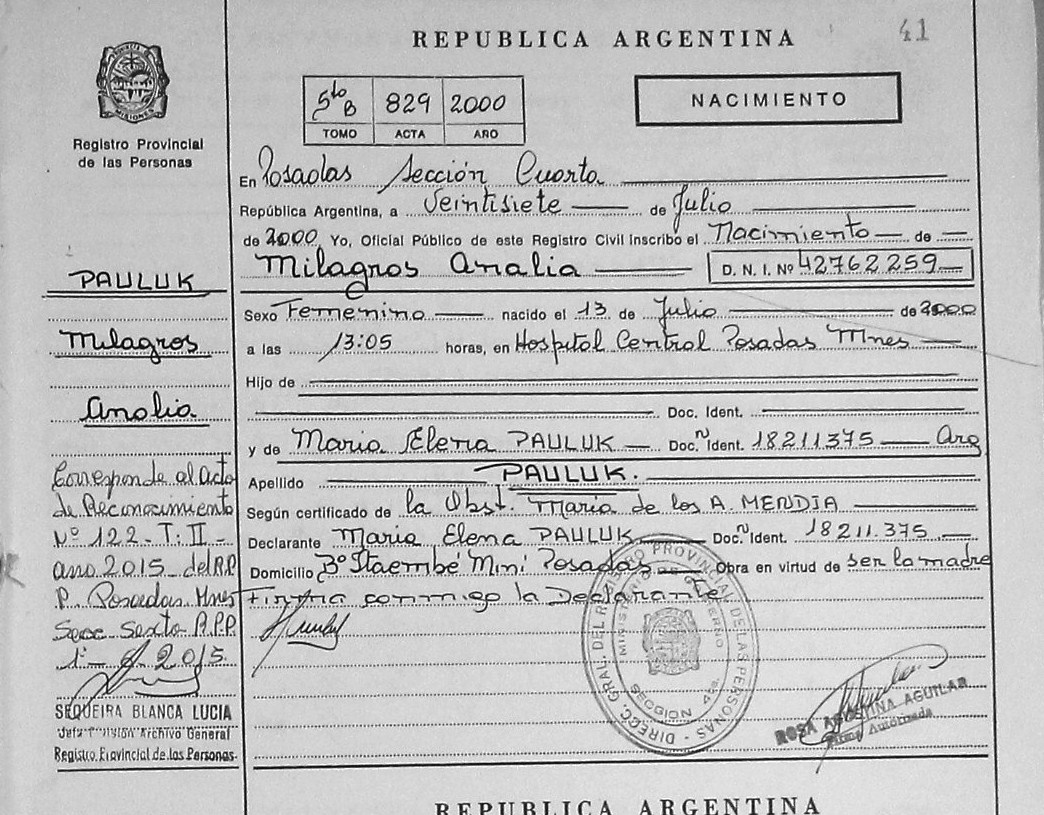 41
REPUBLICA ARGENTINA
MISIONES
Registro Provincial
de las Personas
5to B 829 2000
TOMO ACTA AÑO
NACIMIENTO
En Posadas Sección Cuarta
República Argentina, a Veintisiete de Julio
de 2000 Yo, Oficial Público de este Registro Civil Inscribo el Nacimiento de
Milagros Analia D. N. I. Nº 42762259
Sexo Femenino nacido el 13 de Julio de 2000
a las 13:05 horas, en Hospital Central Posadas Mnes
Hijo de
Doc. Ident.
y de Maria Elena PAULUK Doc. Ident. 18211375 Arg
Apellido PAULUK.
Según certificado de la Obst. Maria de los A. MENDIA
Declarante Maria Elena PAULUK Doc. Ident. 18.211.375
Domicilio Bº Itaembé Mini Posadas Obra en virtud de ser la madre
Firma conmigo la Declarante
PAULUK
Milagros
Analia
Corresponde al Acta
de Reconocimiento
Nº 122 - T: II -
año 2015 del R.P.
P. Posadas Mnes
Secc Sexta R.P.P.
2015
SEQUEIRA BLANCA LUCIA
Jefa División Archivo General
Registro Provincial de las Personas
DIREC. GRAL. DEL REGISTRO PROVINCIAL DE LAS PERSONAS
MINISTERIO DE GOBIERNO
SECCION 4ta.
ROSA AGUSTINA AGUILAR
Firma Autorizada
REPUBLICA ARGENTINA